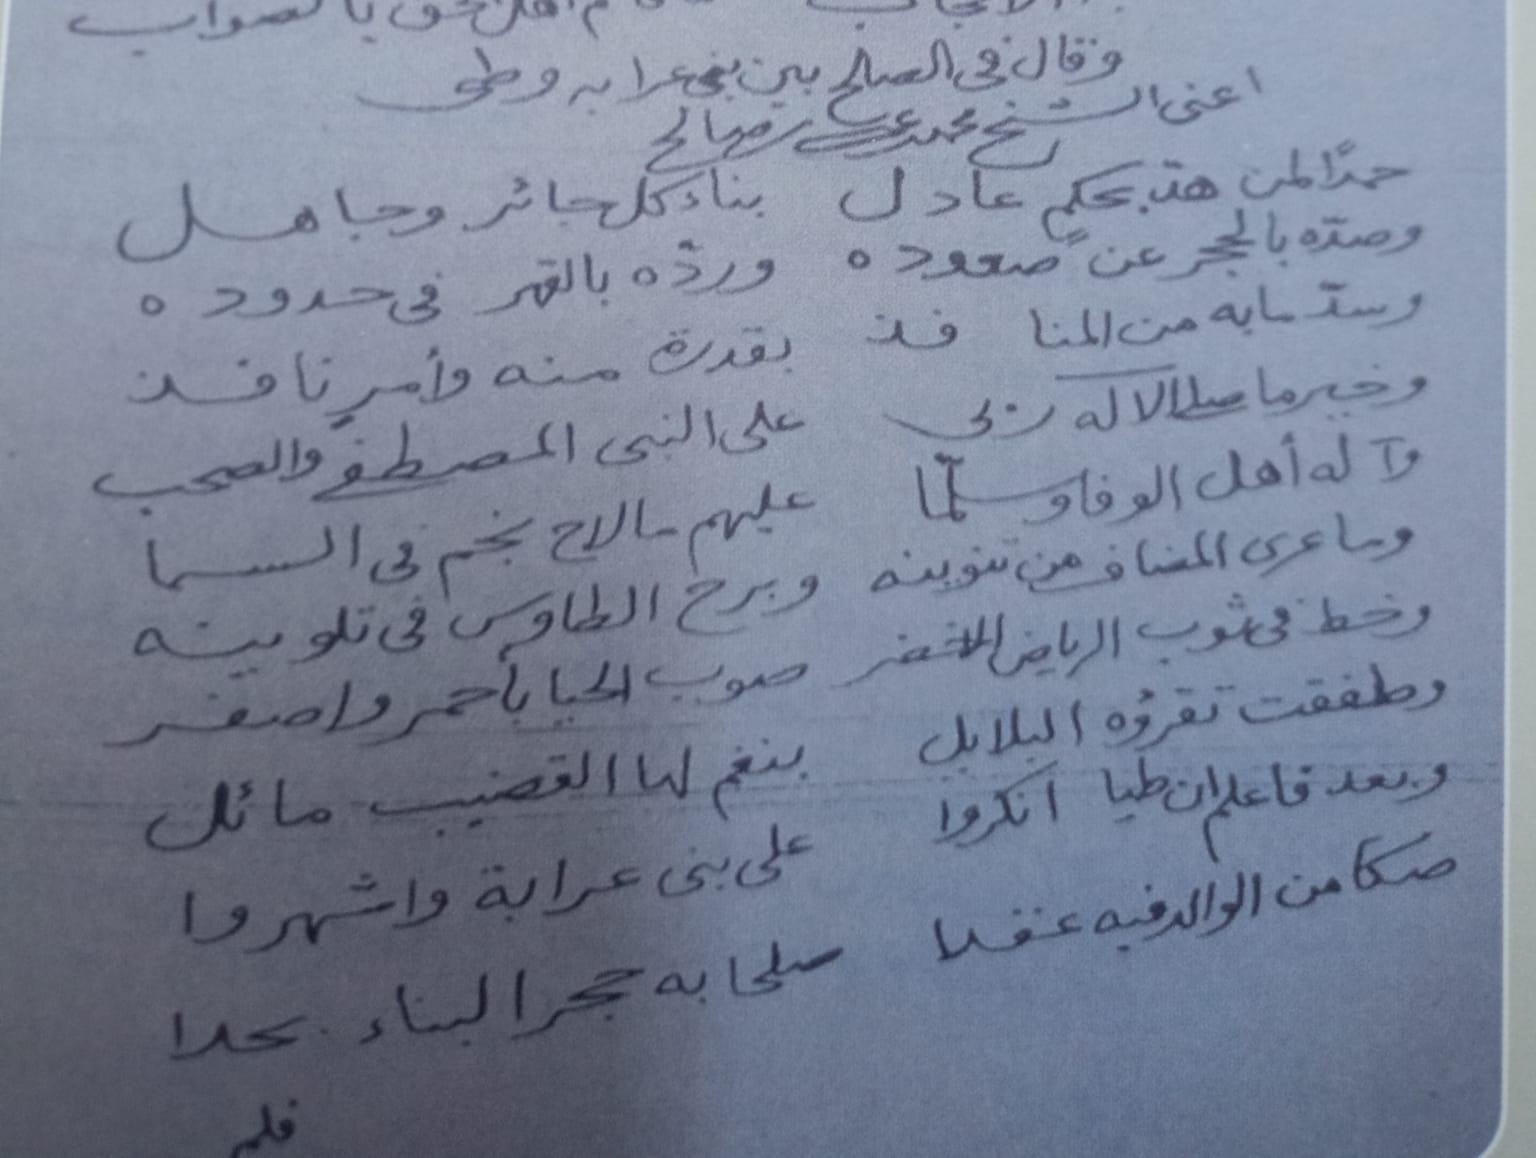 أهل حق بالصواب
وقال في الصلح بين بني عرابه وطى
اعنى الشيخ محمد بن صالح
حمدًا لمن هد بحكمٍ عادل بناء كل جائر وجاهل
وصدّه بالحجر عن صعوده وردّه بالقهر فى حدوده
وسدّ ما به من المنافذ بقدرة منه وأمرٍ نافذ
وخير ما صلى الاله ربى على النبى المصطفى والصحب
وآله أهل الوفا وسلّما عليهم ما لاح نجم فى السما
وما عرى المضاف من تنوينه وبرح الطاوس فى تلوينه
وخط فى ثوب الرياض الاخضر صوب الحيا بأحمر واصفر
وطفقت تقرؤه البلابل بنغم لها القضيب مائل
وبعد فاعلم ان طيا انكروا على بنى عرابة واشهروا
صكا من الوالد فيه عقدا صلحا به حجر البناء بحدا
فلم